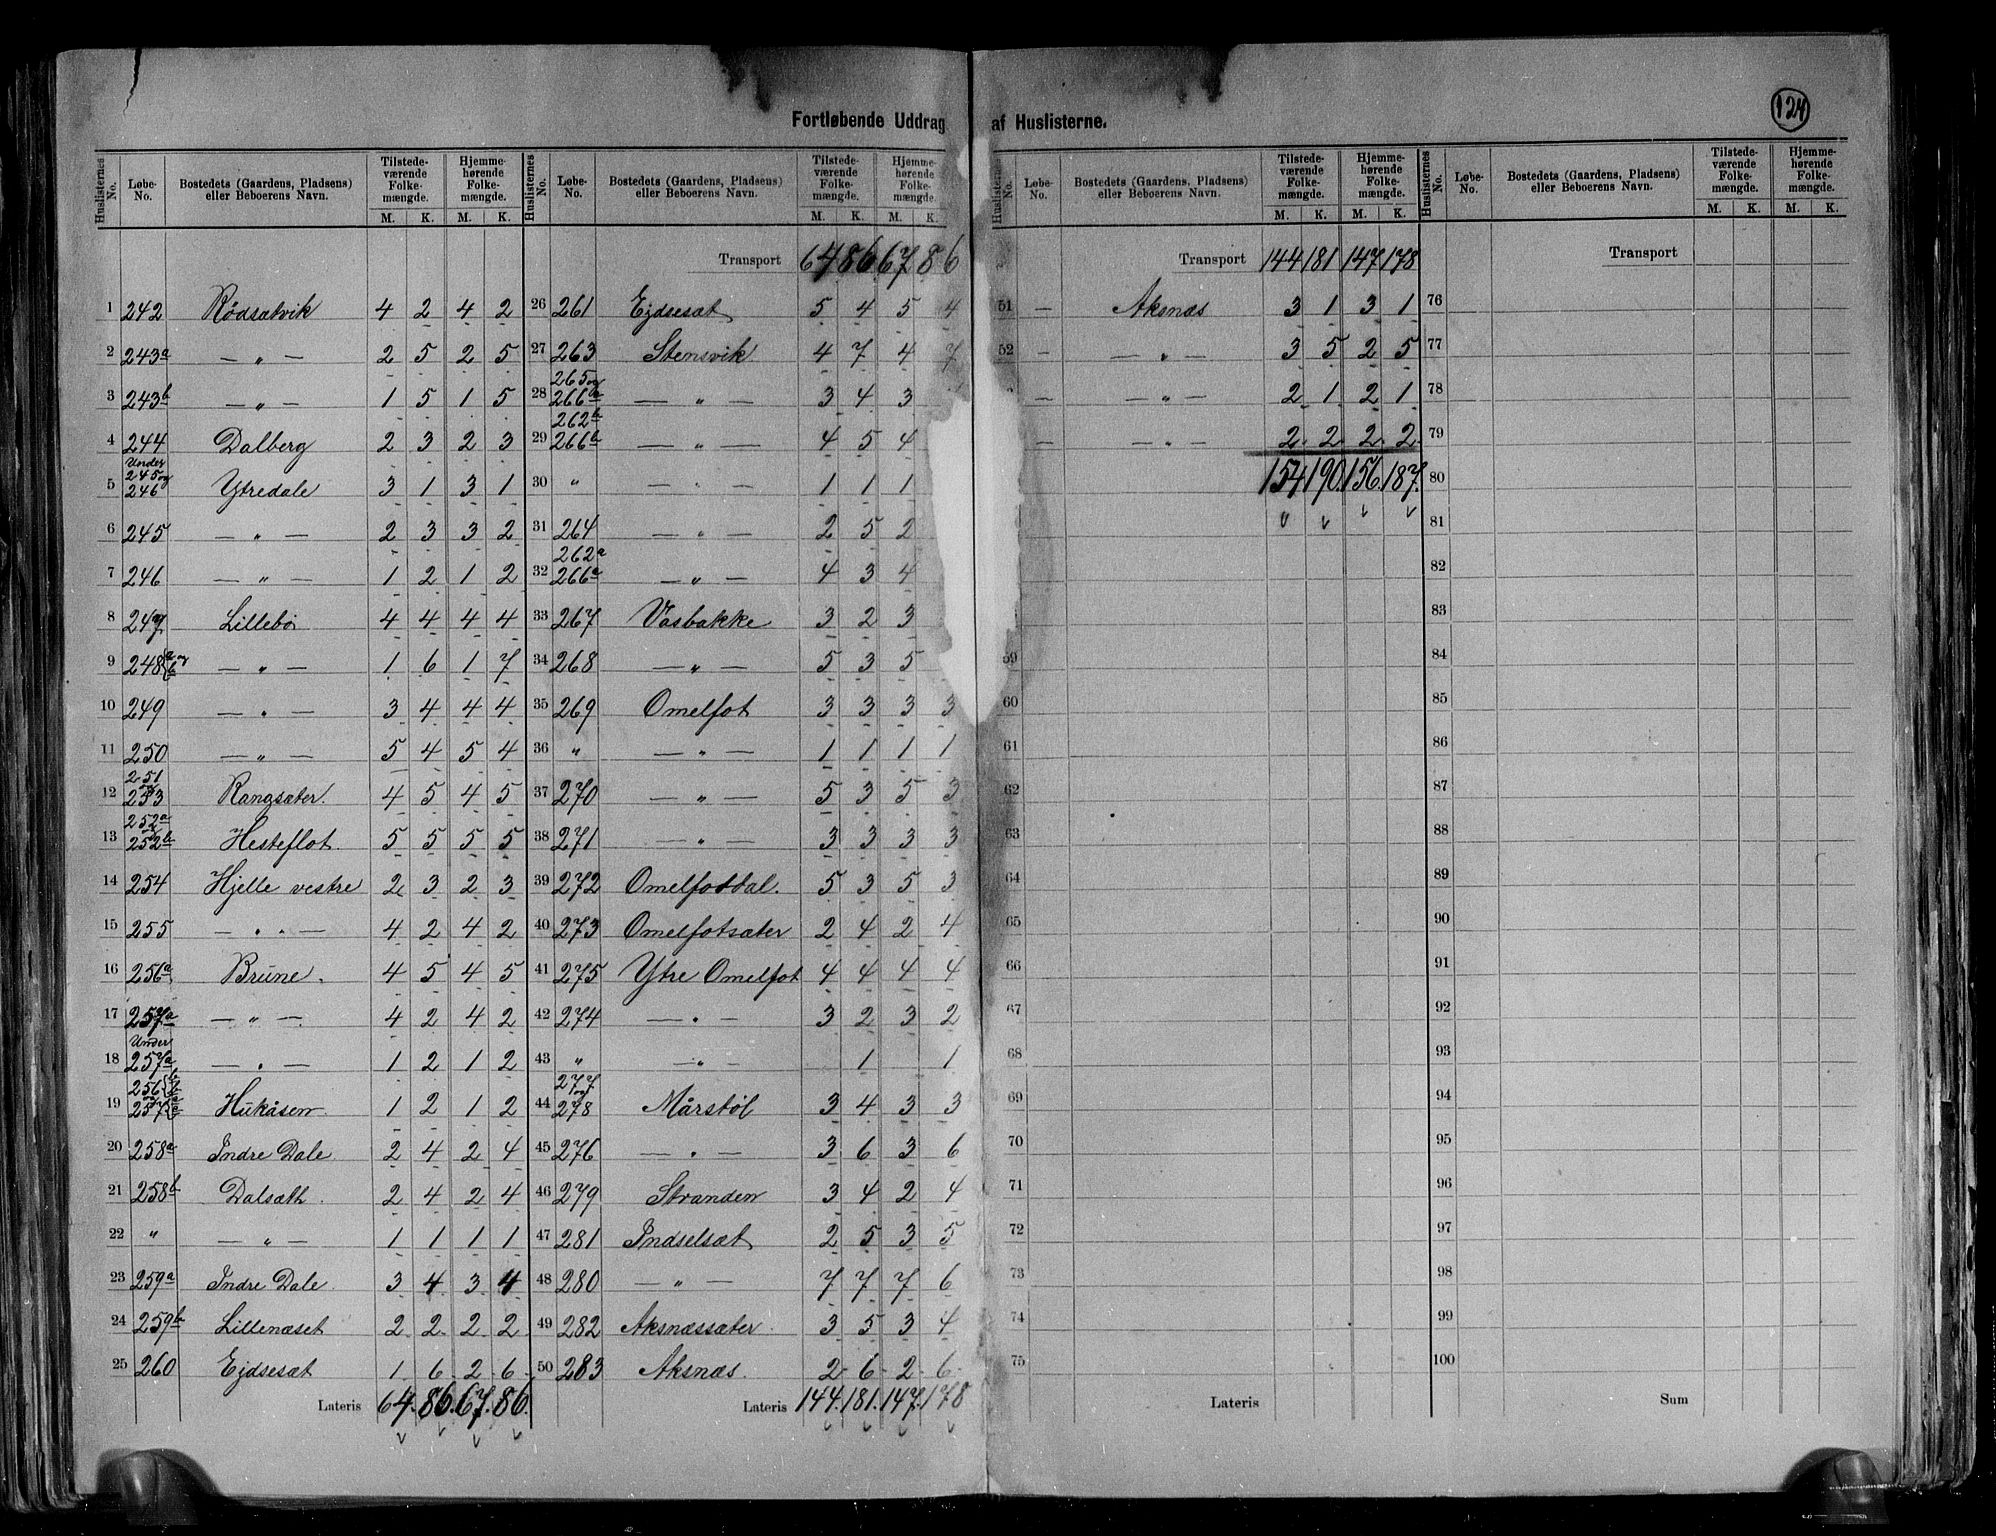 124
Fortløbende Uddrag af Huslisterne.
Huslisternes No. Løbe-No. Bostedets (Gaardens, Pladsens) eller Beboerens Navn. Tilstedeværende Folkemængde. M. K. Hjemmehørende Folkemængde. M. K.
1 242 Rødsætvik 4 2 4 2
2 243a — „ — 2 5 2 5
3 243b — „ — 1 5 1 5
4 244 Dalberg 2 3 2 3
5 Under 245 og 246 Ytredale 3 1 3 1
6 245 — „ — 2 3 3 2
7 246 — „ — 1 2 1 2
8 247 Lillebø 4 4 4 4
9 248 a og b — „ — 1 6 1 7
10 249 — „ — 3 4 4 4
11 250 — „ — 5 4 5 4
12 251 253 Rangsæter. 4 5 4 5
13 252a 252b Hesteflot. 5 5 5 5
14 254 Hjelle vestre 2 3 2 3
15 255 — „ „ — 4 2 4 2
16 256a Brune. 4 5 4 5
17 257a — „ — 4 2 4 2
18 Under 257a — „ — 1 2 1 2
19 256 257 Hukåsen 1 2 1 2
20 258a Indre Dale. 2 4 2 4
21 258b Dalsæth. 2 4 2 4
22 „ — „ — 1 1 1 1
23 259a Indre Dale 3 4 3 4
24 259b Lillenæset 2 2 2 2
25 260 Ejdsesæt 1 6 2 6
Lateris 64. 86. 67. 86.
Huslisternes No. Løbe-No. Bostedets (Gaardens, Pladsens) eller Beboerens Navn. Tilstedeværende Folkemængde. M. K. Hjemmehørende Folkemængde. M. K.
Transport 64 86 67 86
26 261 Ejdsesæt 5 4 5 4
27 263 Stensvik 4 7 4 7
28 265 og 266b — „ — 3 4 3
29 262b 266b — „ — 4 5 4
30 „ — „ — 1 1 1
31 264 — „ — 2 5 2
32 262a 266a — „ — 4 3 4
33 267 Vasbakke 3 2 3
34 268 — „ — 5 3 5
35 269 Omelfot 3 3 3 3
36 „ — „ — 1 1 1 1
37 270 — „ — 5 3 5 3
38 271 — „ — 3 3 3 3
39 272 Omelfotdal. 5 3 5 3
40 273 Omelfotsæter 2 4 2 4
41 275 Ytre Omelfot 4 4 4 4
42 274 — „ — 3 2 3 2
43 „ — „ — 1 1
44 277 og 278 Mårstøl 3 4 3 3
45 276 — „ — 3 6 3 6
46 279 Stranden 3 4 2 4
47 281 Indselsæt 2 5 3 5
48 280 — „ — 7 7 7 6
49 282 Aksnæssæter. 3 5 3 4
50 283 Aksnæs. 2 6 2 6
Lateris 144. 181. 147. 178
No. Løbe-No. Bostedets (Gaardens, Pladsens) eller Beboerens Navn. Tilstedeværende Folkemængde. M. K. Hjemmehørende Folkemængde. M. K.
Transport 144 181 147 178
51 — Aksnæs 3 1 3 1
52 — — „ — 3 5 2 5
— — „ — 2 1 2 1
— — „ — 2 2 2 2
154 190. 156. 187.
59
60
61
62
63
64
65
66
67
68
69
70
71
72
73
74
75
Lateris
Huslisternes No. Løbe-No. Bostedets (Gaardens, Pladsens) eller Beboerens Navn. Tilstedeværende Folkemængde. M. K. Hjemmehørende Folkemængde. M. K.
Transport
76
77
78
79
80
81
82
83
84
85
86
87
88
89
90
91
92
93
94
95
96
97
98
99
100
Sum